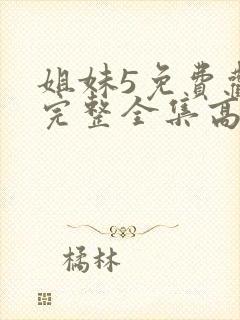 姐妹5免费
完整全集高
橘林